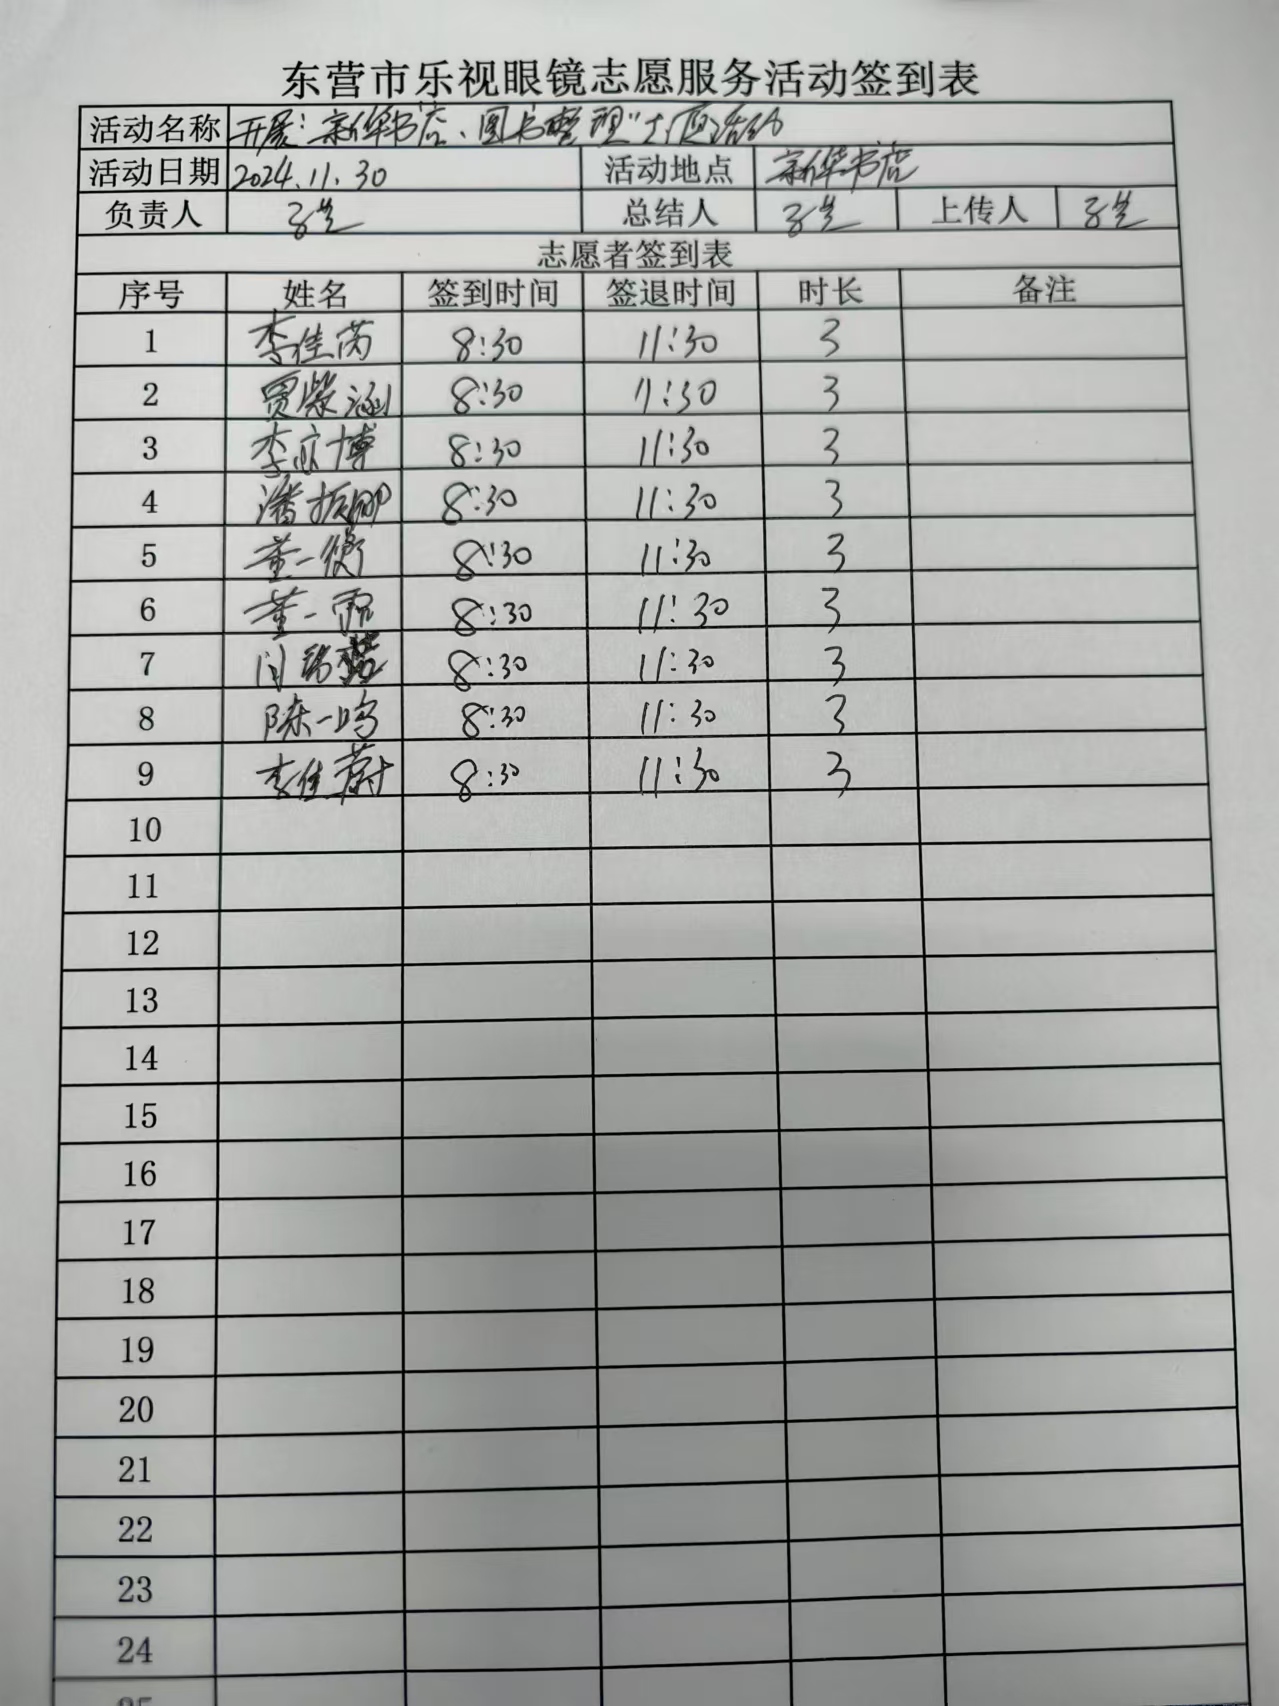 东营市乐视眼镜志愿服务活动签到表
活动名称 开展"新华书店、图书整理"志愿活动
活动日期 2024.11.30 活动地点 新华书店
负责人 总结人 上传人
志愿者签到表
序号 姓名 签到时间 签退时间 时长 备注
1 李佳芮 8:30 11:30 3
2 贾紫涵 8:30 11:30 3
3 李亦博 8:30 11:30 3
4 潘振 8:30 11:30 3
5 董一衡 8:30 11:30 3
6 董一 8:30 11:30 3
7 闫 8:30 11:30 3
8 陈一鸣 8:30 11:30 3
9 李佳蔚 8:30 11:30 3
10
11
12
13
14
15
16
17
18
19
20
21
22
23
24
25